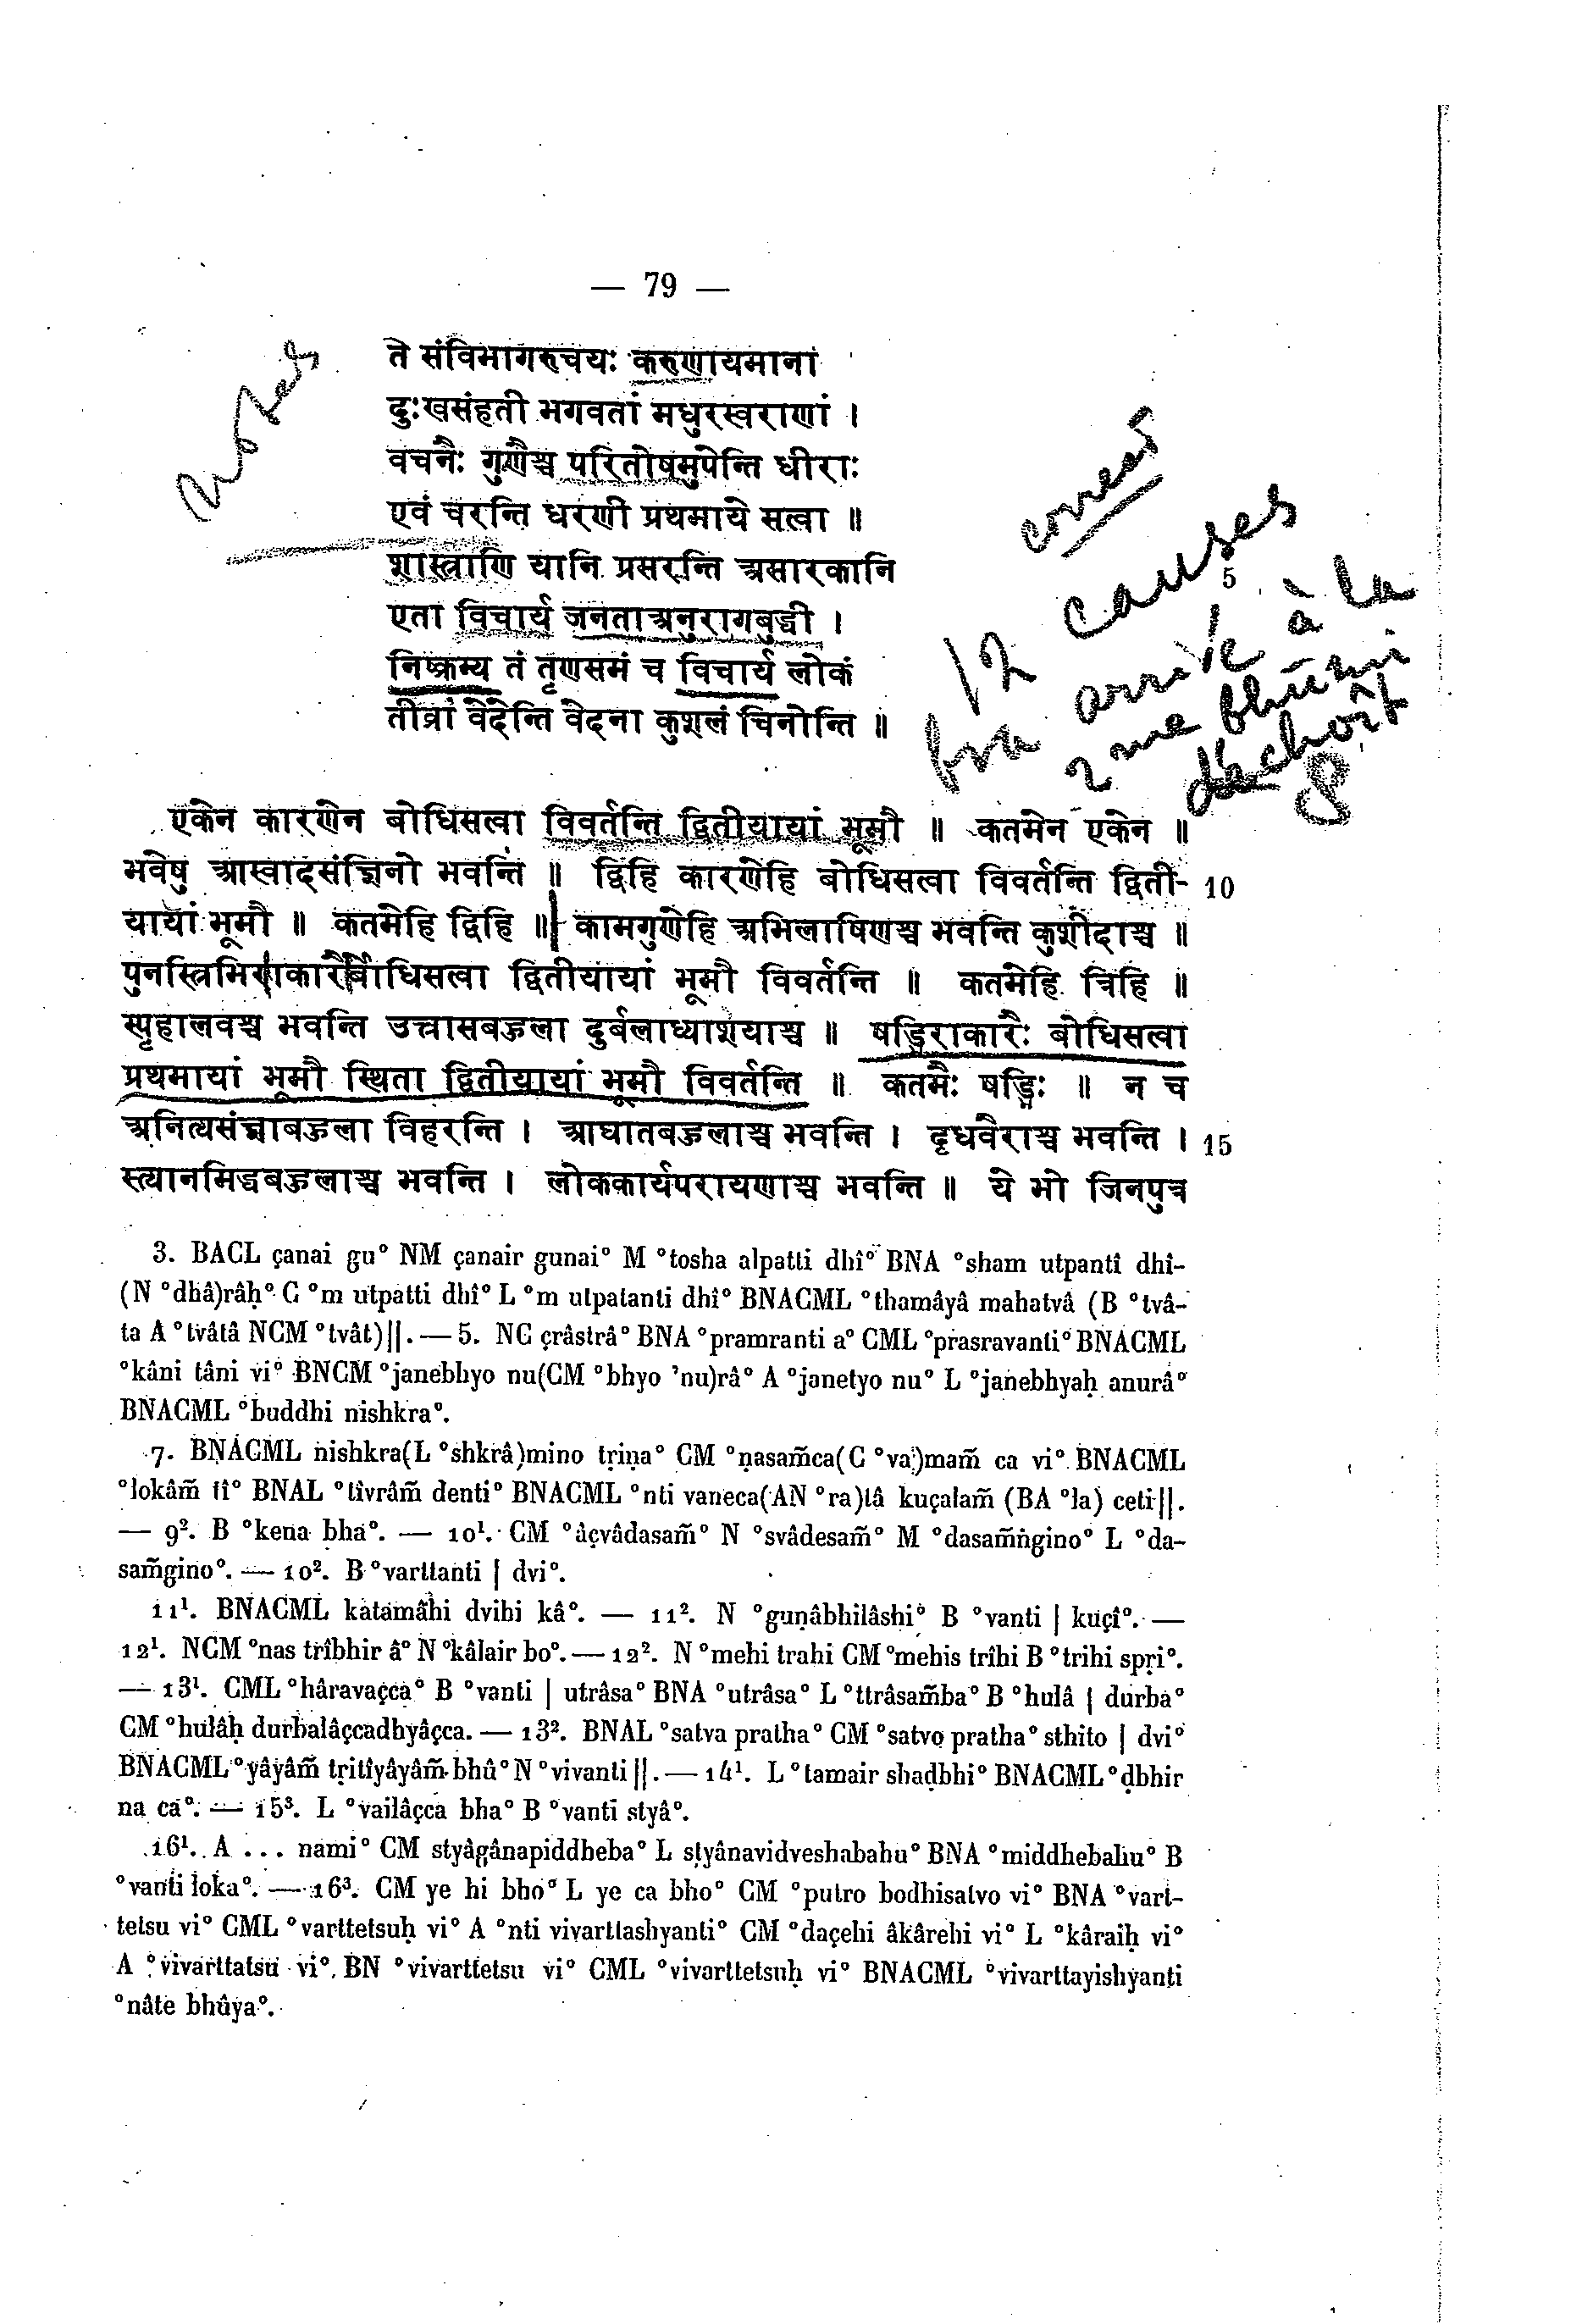 — 79 —
notes
ते संविभागरुचयः करुणायमाना
दुःखसंहती भगवतां मधुरस्वराणां ।
वचनैः गुणैश्च परितोषमुपेन्ति धीराः
एवं चरन्ति धरणीं प्रथमाये सत्वा ॥
शास्त्राणि यानि प्रसरन्ति असारकानि
5
एता विचार्य जनताअनुरागबुद्धी ।
निष्क्रम्य तं तृणसमं च विचार्य लोकं
तीव्रां वेदेन्ति वेदना कुशलं चिनोन्ति ॥
12 causes
bra arrivé à la
2me bhūmi
déchoit
एकेन कारणेन बोधिसत्वा विवर्तन्ति द्वितीयायां भूमौ ॥ कतमेन एकेन ॥
भवेषु आस्वादसंज्ञिनो भवन्ति ॥ द्विहि कारणेहि बोधिसत्वा विवर्तन्ति द्विती- 10
यायां भूमौ ॥ कतमेहि द्विहि ॥ कामगुणेहि अभिलाषिणश्च भवन्ति कुशीदाश्च ॥
पुनस्त्रिभिराकारैर्बोधिसत्वा द्वितीयायां भूमौ विवर्तन्ति ॥ कतमेहि त्रिहि ॥
स्पृहालवश्च भवन्ति उत्त्रासबहुला दुर्बलाध्याशयाश्च ॥ षड्भिराकारैः बोधिसत्वा
प्रथमायां भूमौ स्थिता द्वितीयायां भूमौ विवर्तन्ति ॥ कतमैः षड्भिः ॥ न च
अनित्यसंज्ञाबहुला विहरन्ति । आघातबहुलाश्च भवन्ति । दृधवैराश्च भवन्ति । 15
स्त्यानमिद्धबहुलाश्च भवन्ति । लोककार्यपरायणाश्च भवन्ति ॥ ये भो जिनपुत्र
3. BACL çanai gu° NM çanair gunai° M °tosha alpatti dhî° BNA °sham utpantî dhî-
(N °dhâ)râḥ° C °m utpatti dhî° L °m utpatanti dhî° BNACML °thamâyâ mahatvâ (B °tvâ-
ta A °tvâtâ NCM °tvât)||. — 5. NC çrâstrâ° BNA °pramranti a° CML °prasravanti° BNACML
°kâni tâni vi° BNCM °janebhyo nu(CM °bhyo 'nu)râ° A °janetyo nu° L °janebhyaḥ anurâ°
BNACML °buddhi nishkra°.
7. BNACML nishkra(L °shkrâ)mino tṛiṇa° CM °ṇasam̃ca(C °va)mam̃ ca vi° BNACML
°lokâm̃ tî° BNAL °tîvrâm̃ denti° BNACML °nti vaneca(AN °ra)tâ kuçalam̃ (BA °la) ceti||.
— 9². B °kena bha°. — 10¹. CM °âçvâdasam̃° N °svâdesam̃° M °dasam̃ṅgino° L °da-
sam̃gino°. — 10². B °varttanti | dvi°.
11¹. BNACML katamâhi dvihi kâ°. — 11². N °guṇâbhilâshi° B °vanti | kuçî°. —
12¹. NCM °nas trîbhir â° N °kâlair bo°. — 12². N °mehi trahi CM °mehis trîhi B °trihi spṛi°.
— 13¹. CML °hâravaçca° B °vanti | utrâsa° BNA °utrâsa° L °ttrâsam̃ba° B °hulâ | durba°
CM °hulâḥ durbalâççadhyâçca. — 13². BNAL °satva pratha° CM °satvo pratha° sthito | dvi°
BNACML °yâyâm̃ tṛitîyâyâm̃ bhû° N °vivanti||. — 14¹. L °tamair shaḍbhi° BNACML °ḍbhir
na ca°. — 15³. L °vailâçca bha° B °vanti styâ°.
16¹. A ... nami° CM styâgânapiddheba° L styânavidveshabahu° BNA °middhebahu° B
°vanti loka°. — 16³. CM ye hi bho° L ye ca bho° CM °putro bodhisatvo vi° BNA °vart-
tetsu vi° CML °varttetsuḥ vi° A °nti vivarttashyanti° CM °daçehi âkârehi vi° L °kâraiḥ vi°
A °vivarttatsu vi°. BN °vivarttetsu vi° CML °vivarttetsuḥ vi° BNACML °vivarttayishyanti
°nâte bhûya°.